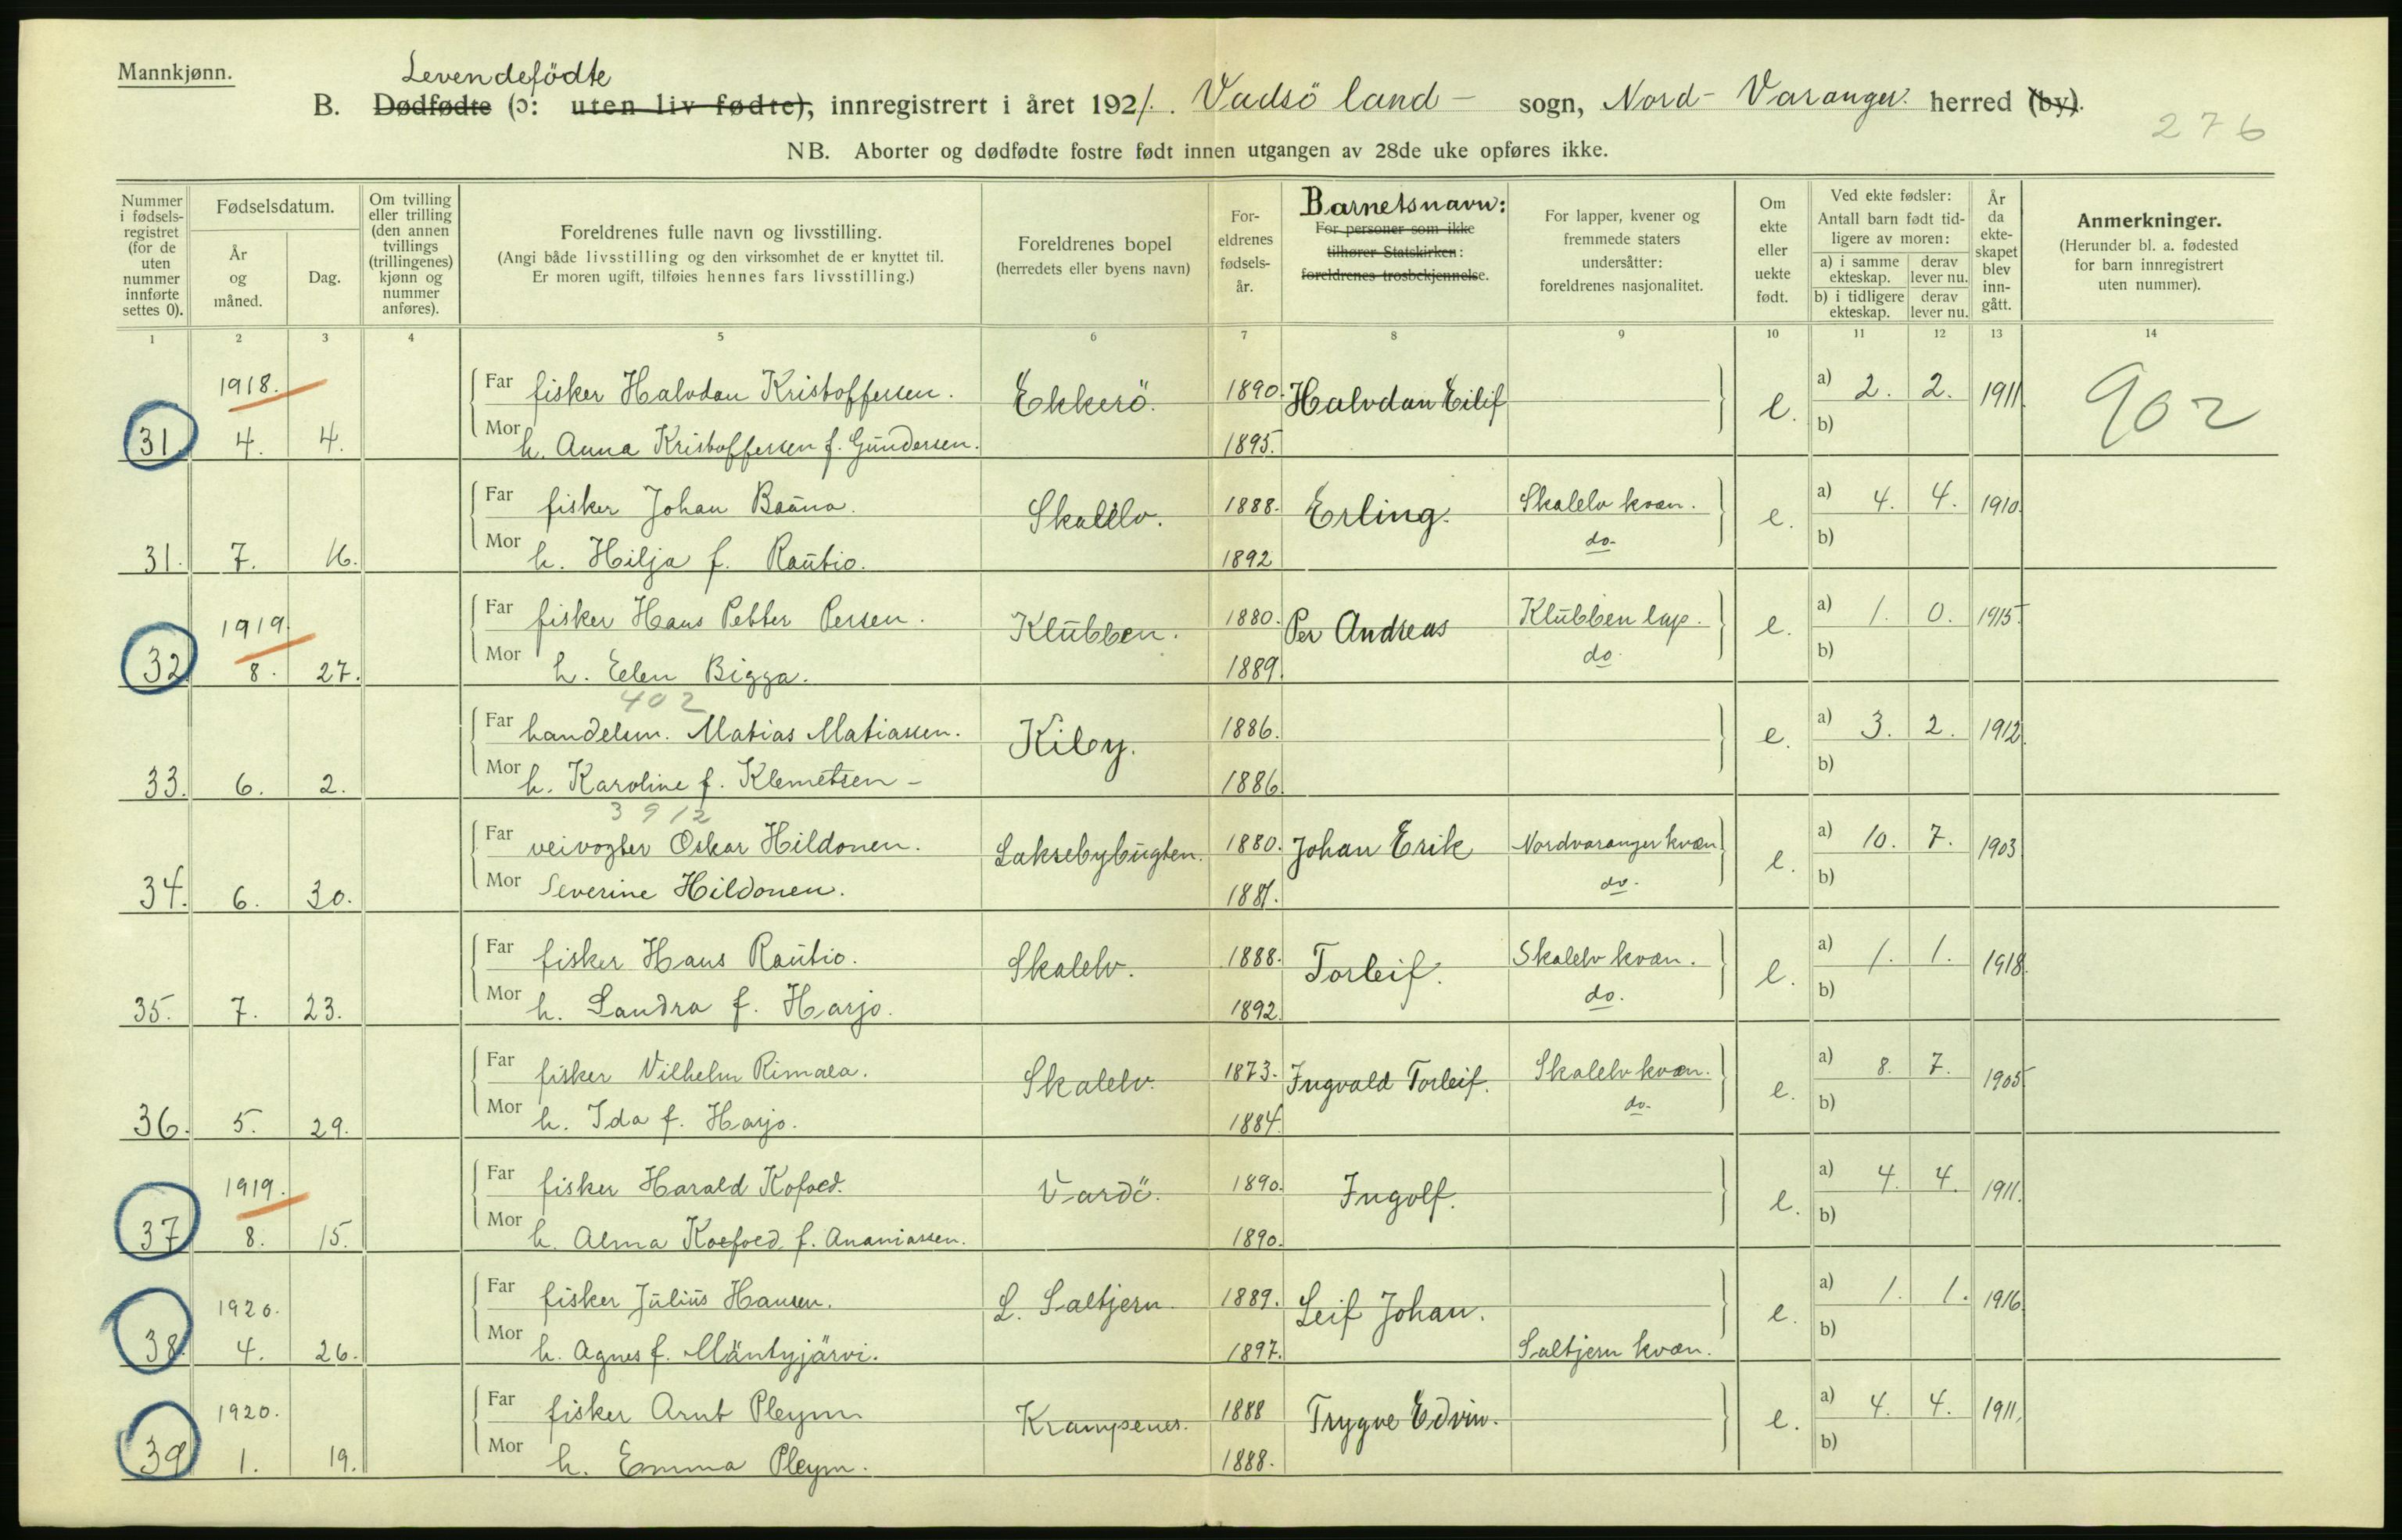 Mannkjønn.
Levendefödte
B. Dødfødte (ɔ: uten liv fødte), innregistrert i året 1921. Vadsö land - sogn, Nord-Varanger herred (by).
276
NB. Aborter og dødfødte fostre født innen utgangen av 28de uke opføres ikke.
Nummer i fødselsregistret (for de uten nummer innførte settes 0).
Fødselsdatum.
År og måned.
Dag.
Om tvilling eller trilling (den annen tvillings (trillingenes) kjønn og nummer anføres).
Foreldrenes fulle navn og livsstilling.
(Angi både livsstilling og den virksomhet de er knyttet til.
Er moren ugift, tilføies hennes fars livsstilling.)
Foreldrenes bopel
(herredets eller byens navn)
Foreldrenes fødselsår.
Barnetsnavn:
For personer som ikke tilhører Statskirken: foreldrenes trosbekjennelse.
For lapper, kvener og fremmede staters undersåtter: foreldrenes nasjonalitet.
Om ekte eller uekte født.
Ved ekte fødsler:
Antall barn født tidligere av moren:
a) i samme ekteskap.
derav lever nu.
b) i tidligere ekteskap.
derav lever nu.
År da ekteskapet blev inngått.
Anmerkninger.
(Herunder bl. a. fødested for barn innregistrert uten nummer).
1 2 3 4 5 6 7 8 9 10 11 12 13 14
1918.
Far fisker Halvdan Kristoffersen. Ekkerö. 1890. Halvdan Eilif e. a) 2. 2. 1911. 902
31 4. 4. Mor h. Anna Kristoffersen f. Gundersen. 1895. b)
Far fisker Johan Bauna. Skallelv. 1888. Erling. Skalelv kvæn. e. a) 4. 4. 1910.
31. 7. 16. Mor h. Hilja f. Rautio. 1892 do. b)
1919.
Far fisker Hans Petter Persen. Klubben. 1880. Per Andreas Klubben lap. e. a) 1. 0. 1915.
32 8. 27. Mor h. Elen Bigga. 1889. do. b)
402
Far handelsm. Matias Matiassen. Kiby. 1886. e. a) 3. 2. 1912.
33. 6. 2. Mor h. Karoline f. Klemetsen - 1886. b)
3912
Far veivogter Oskar Hildonen. Laksebybugten. 1880. Johan Erik Nordvaranger kvæn e. a) 10. 7. 1903
34. 6. 30. Mor Severine Hildonen. 1881. do. b)
Far fisker Hans Rautio. Skalelv. 1888. Torleif. Skalelv kvæn. e. a) 1. 1. 1918.
35. 7. 23. Mor h. Sandra f. Harjo. 1892. do. b)
Far fisker Vilhelm Rimala. Skalelv. 1873. Ingvald Torleif. Skalelv kvæn. e. a) 8. 7. 1905
36. 5. 29. Mor h. Ida f. Harjo. 1884. do. b)
1919.
Far fisker Harald Kofoed. Vardö. 1890. Ingolf. e. a) 4. 4. 1911.
37 8. 15. Mor h. Alma Koefoed f. Ananiassen. 1890. b)
1920.
Far fisker Julius Hansen. L. Saltjern. 1889. Leif Johan. e. a) 1. 1. 1916.
38. 4. 26. Mor h. Agnes f. Mäntyjärvi. 1897. Saltjern kvæn. b)
1920.
Far fisker Arnt Pleym Krampenes. 1888 Trygve Edvin. e. a) 4. 4. 1911.
39 1. 19. Mor h. Emma Pleym. 1888. b)